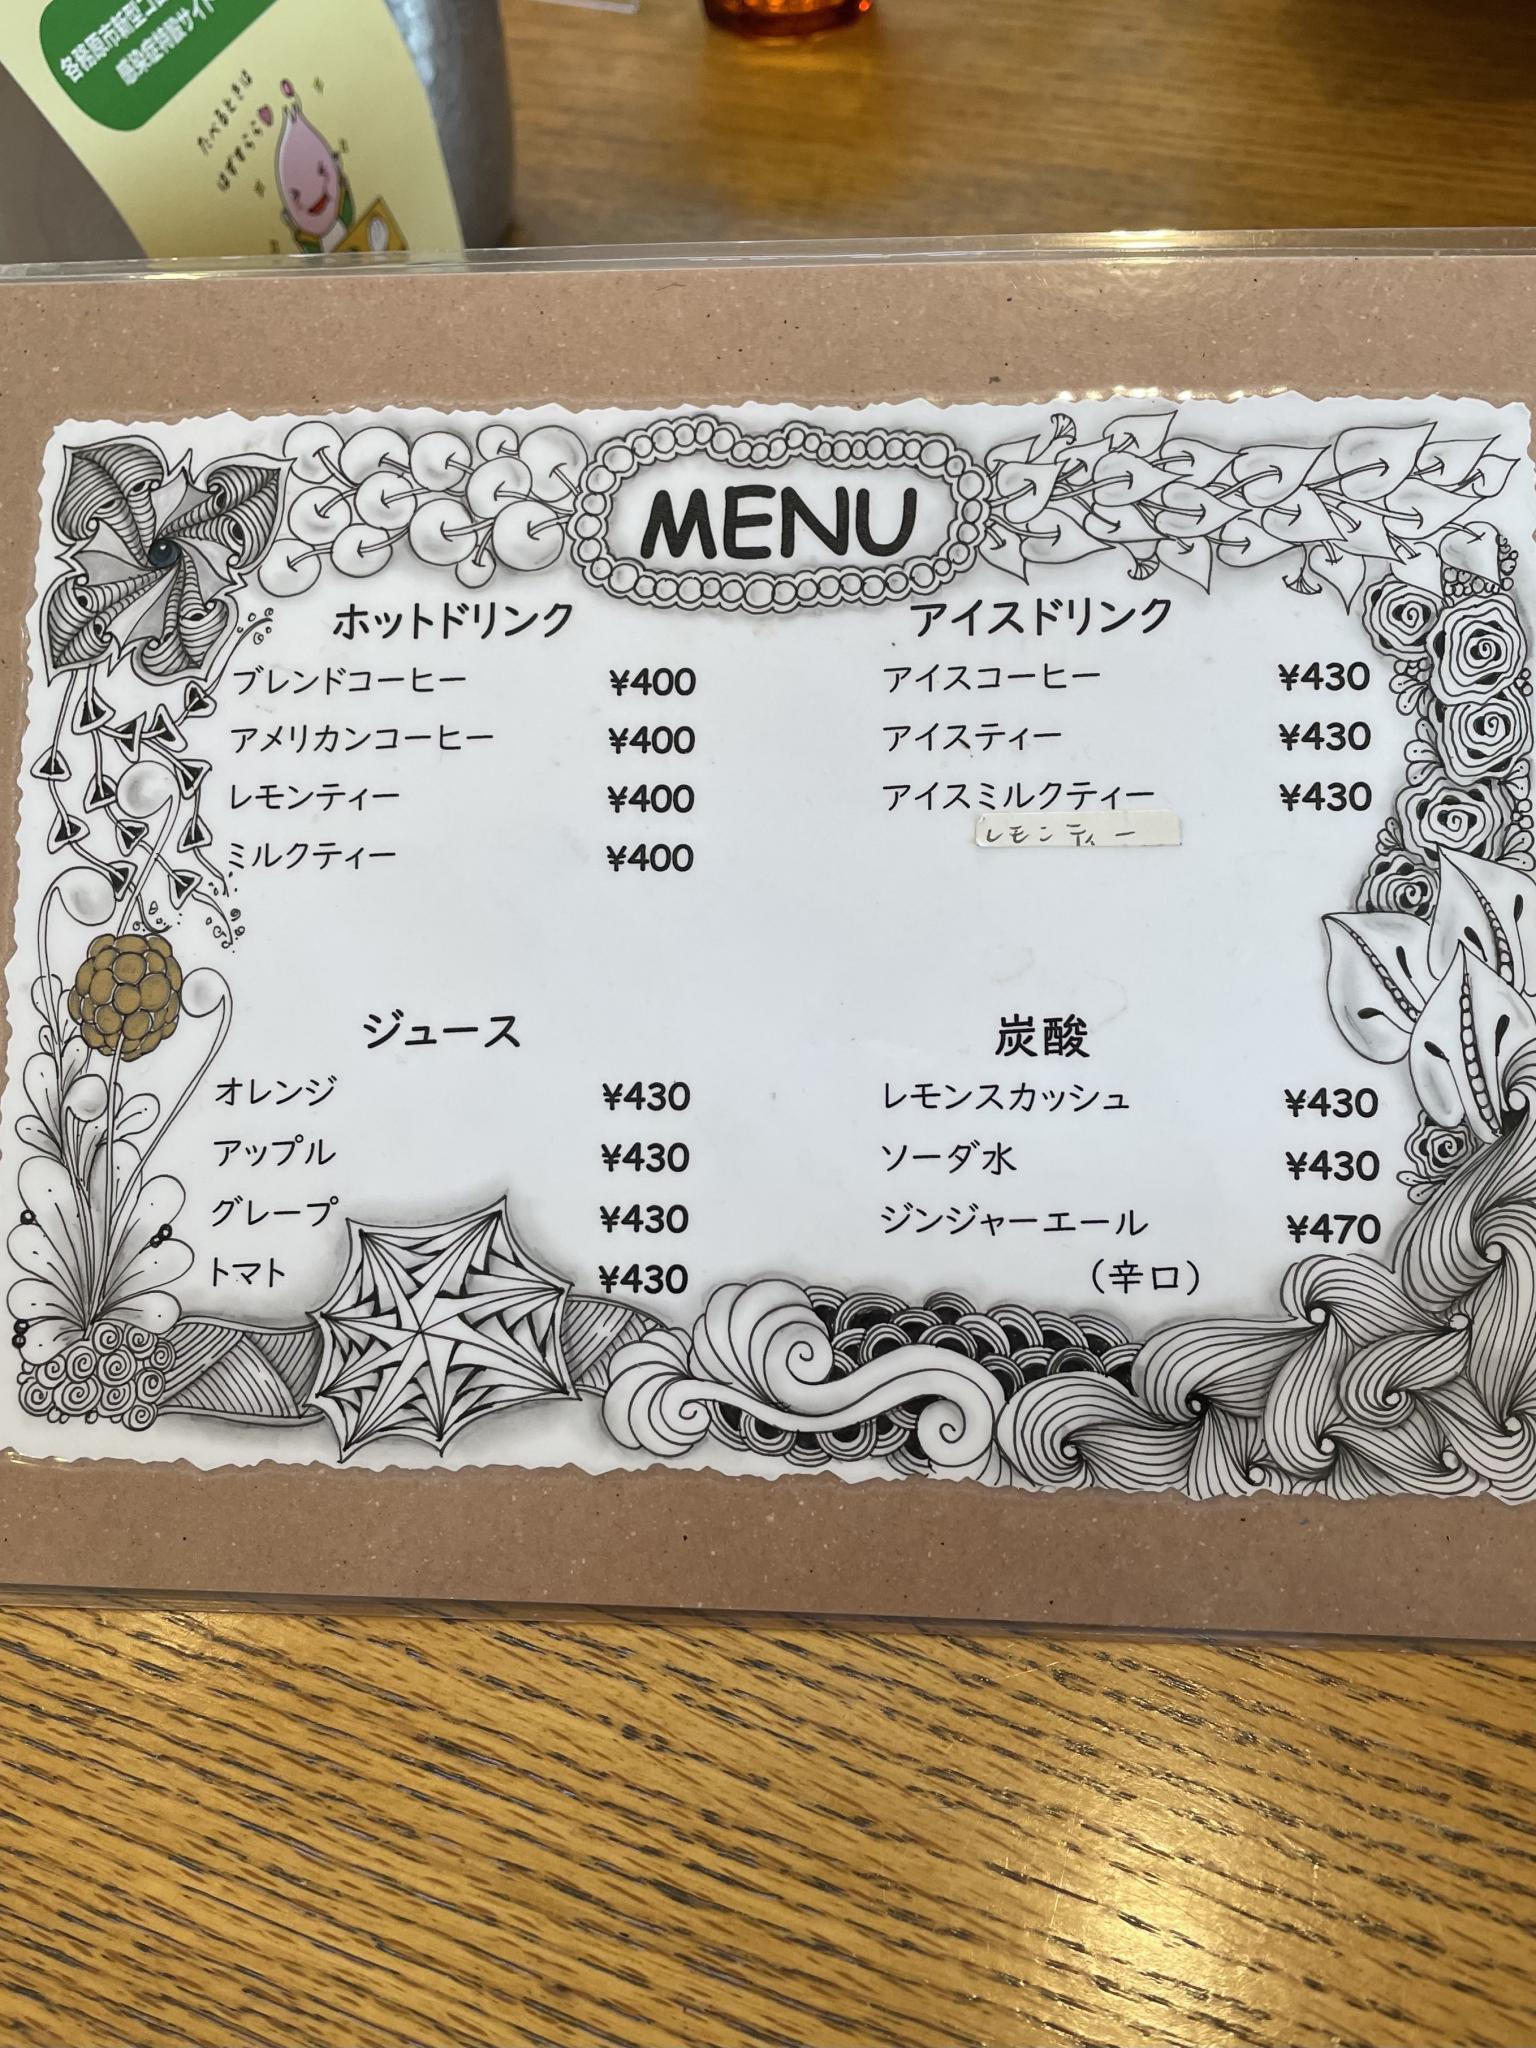 各務原市新型コロ
感染症特設サイト
たべるときは
はずすらら
MENU
ホットドリンク
ブレンドコーヒー ¥400
アメリカンコーヒー ¥400
レモンティー ¥400
ミルクティー ¥400
アイスドリンク
アイスコーヒー ¥430
アイスティー ¥430
アイスミルクティー ¥430
レモンティー
ジュース
オレンジ ¥430
アップル ¥430
グレープ ¥430
トマト ¥430
炭酸
レモンスカッシュ ¥430
ソーダ水 ¥430
ジンジャーエール ¥470
（辛口）